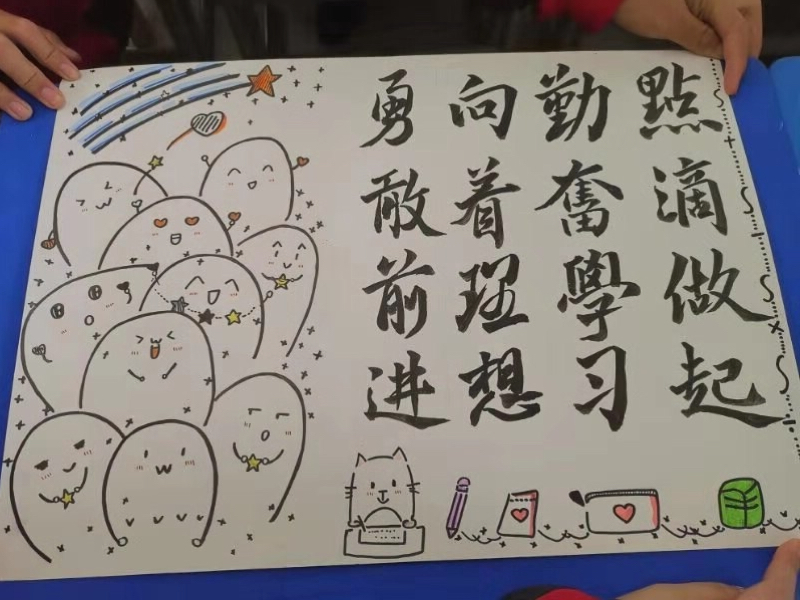 點滴做起
勤奮學习
向着理想
勇敢前进